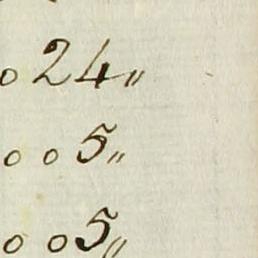 o 24 〃
o o 5 〃
o o 5 〃